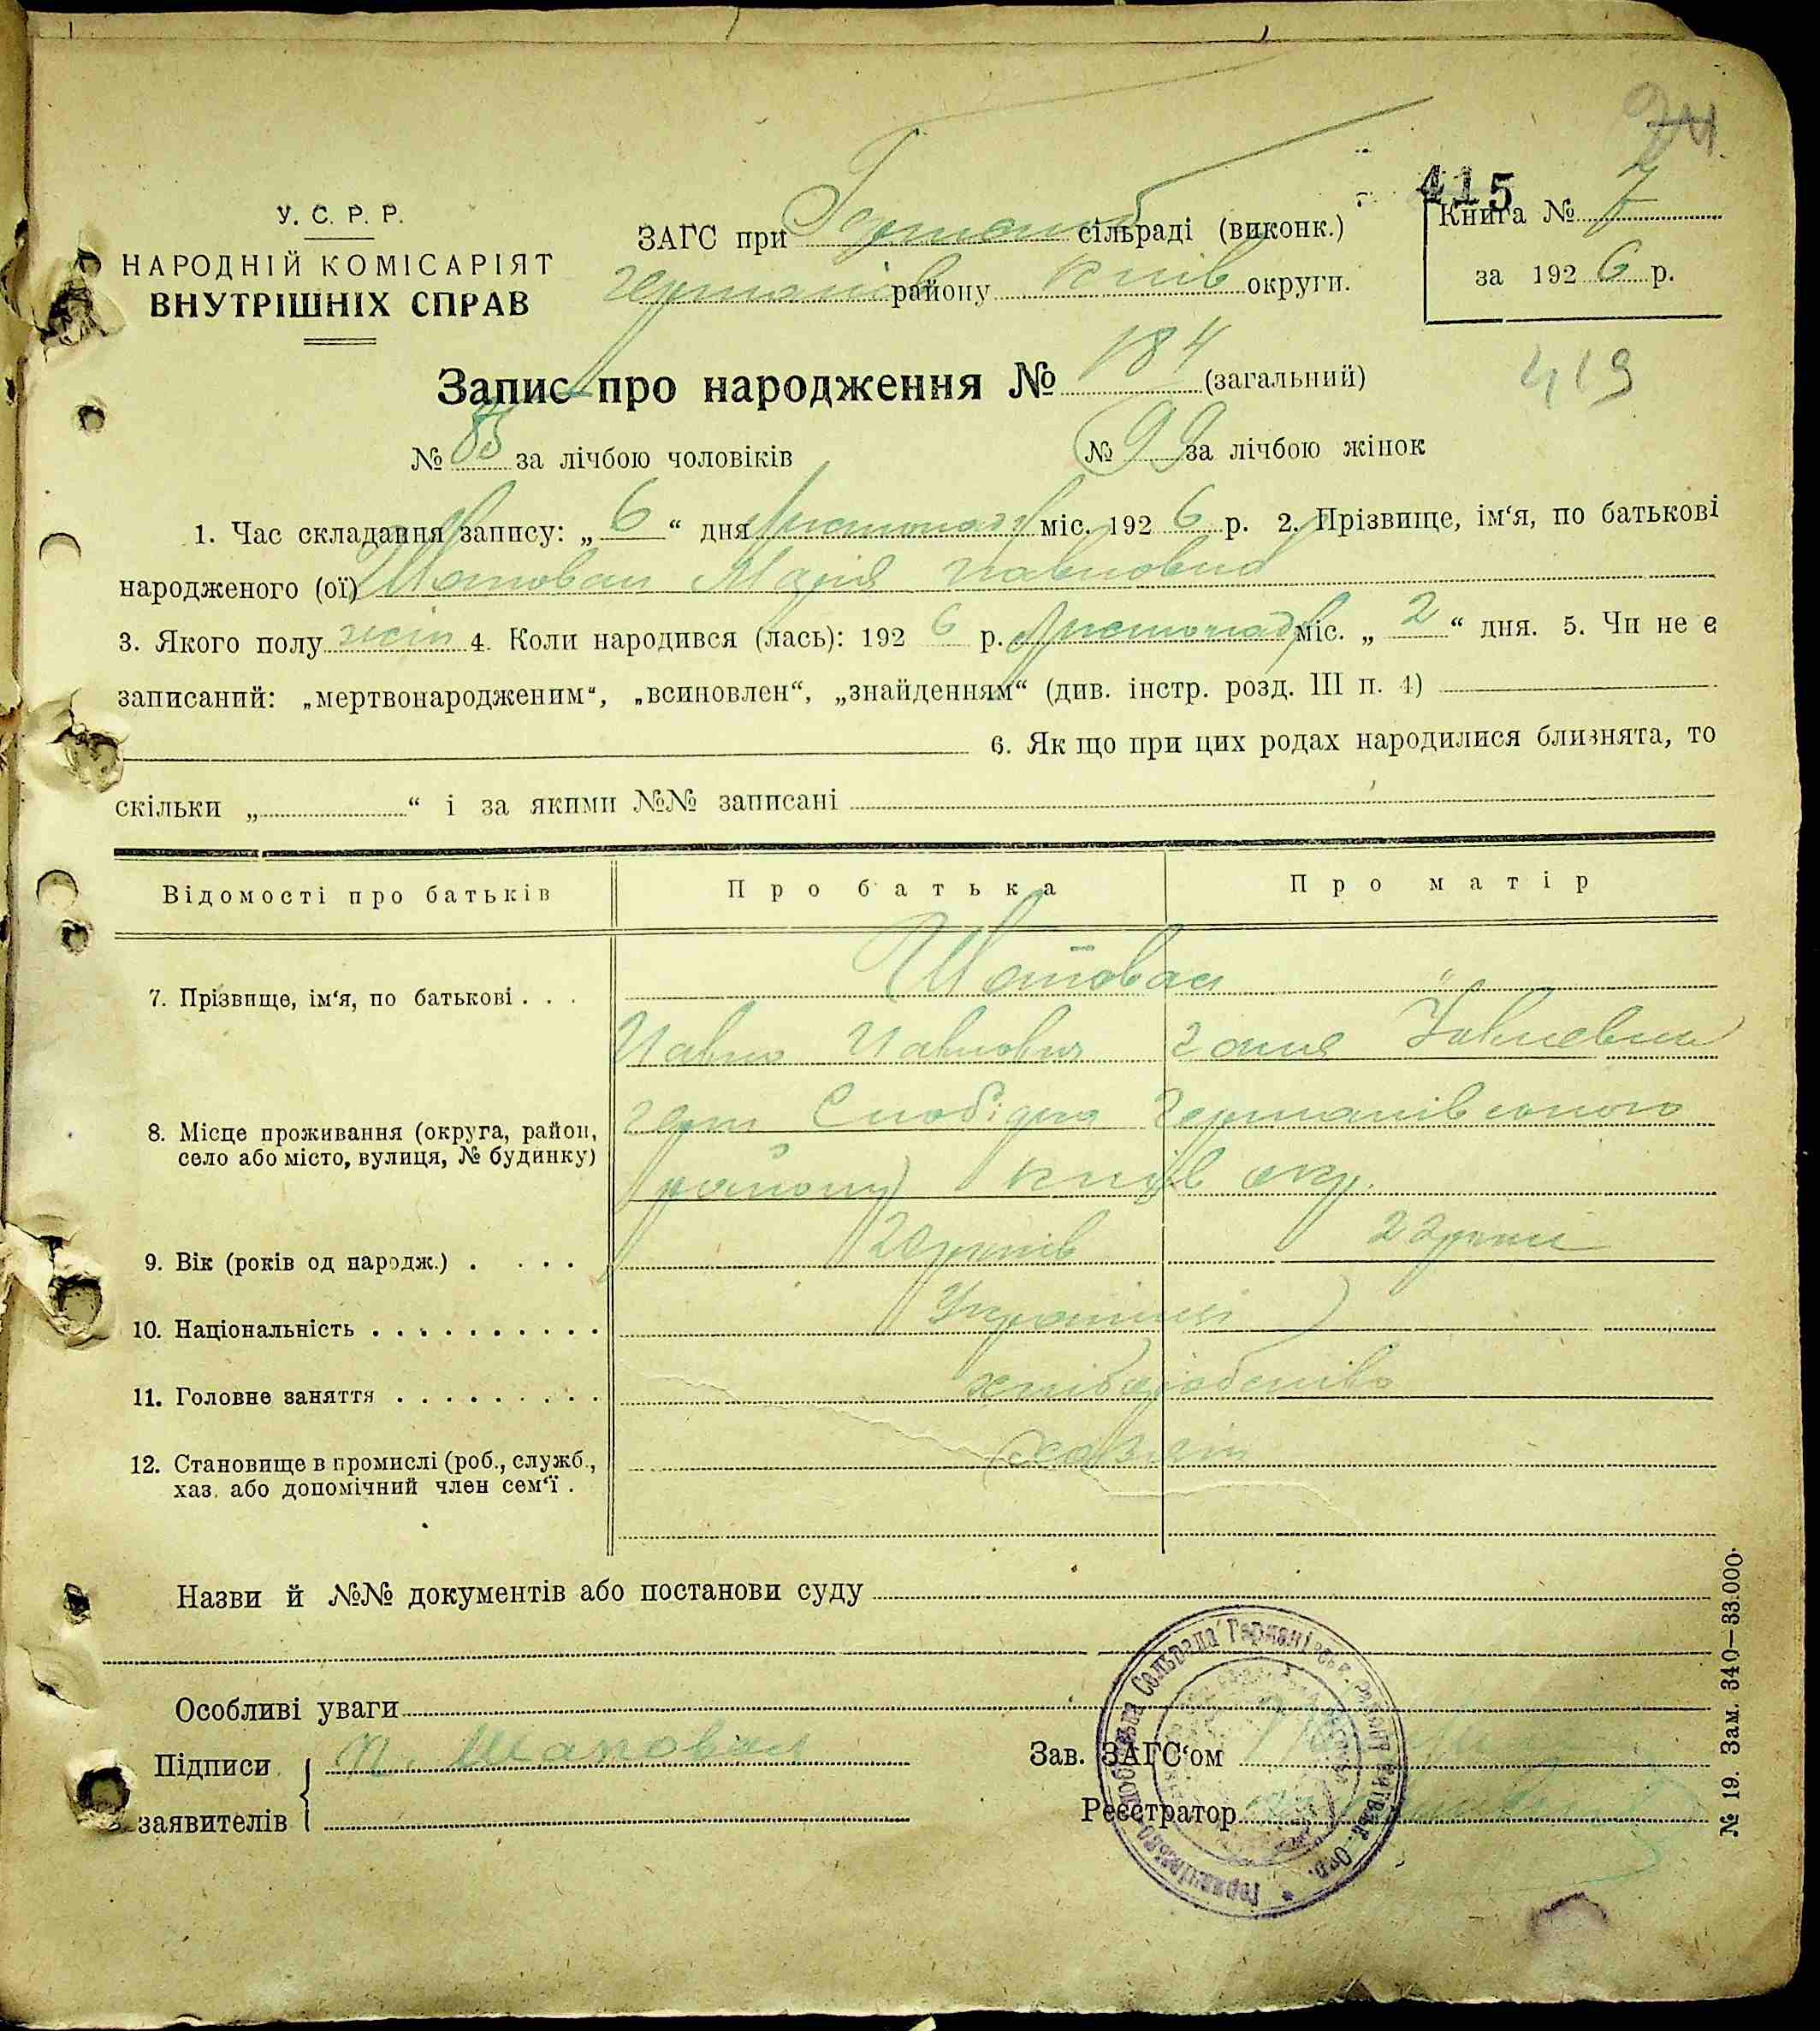 24.
415
У. С. Р. Р.
НАРОДНІЙ КОМІСАРІЯТ
ВНУТРІШНІХ СПРАВ
ЗАГС при Герман сільраді (виконк.)
Германів району Київ округи.
Книга № 7
за 1926 р.
419
Запис про народження № 184 (загальний)
№ 85 за лічбою чоловіків № 99 за лічбою жінок
1. Час складання запису: „6“ дня листопада міс. 1926 р. 2. Прізвище, ім‘я, по батькові
народженого (ої) Шаповал Марія Павловна
3. Якого полу жін 4. Коли народився (лась): 1926 р. листопад міс. „2“ дня. 5. Чи не є
записаний: „мертвонародженим“, „всиновлен“, „знайденням“ (див. інстр. розд. III п. 4)
6. Як що при цих родах народилися близнята, то
скільки „ “ і за якими №№ записані
Відомості про батьків Про батька Про матір
7. Прізвище, ім‘я, по батькові . . . Шаповал "
Павло Павлович
8. Місце проживання (округа, район, село або місто, вулиця, № будинку) Герм Слобідка Германівського
району Київ окр.
9. Вік (років од народж.) . . . . 20 років 22 роки
10. Національність . . . . . . . . . . Українці
11. Головне заняття . . . . . . . . . хліборобство
12. Становище в промислі (роб., служб., хаз. або допомічний член сем‘ї .
Назви й №№ документів або постанови суду
Особливі уваги
Підписи заявителів П. Шаповал
Зав. ЗАГС‘ом
Реєстратор
№ 19. Зам. 340—33.000.